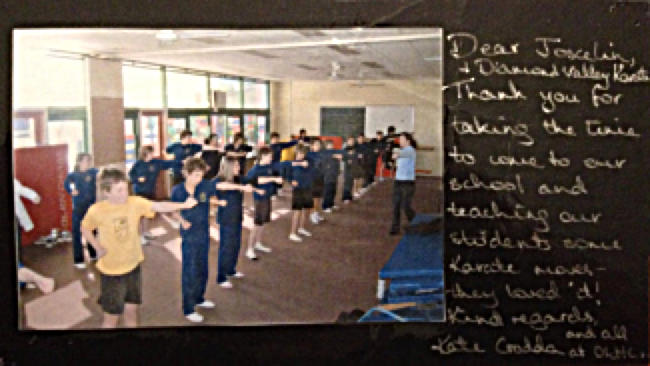 Dear Joscelin,
+ Diamond Valley Karate
Thank you for
taking the time
to come to our
school and
teaching our
students some
Karate moves -
they loved it!
Kind regards,
Kate and all
at OLMC.